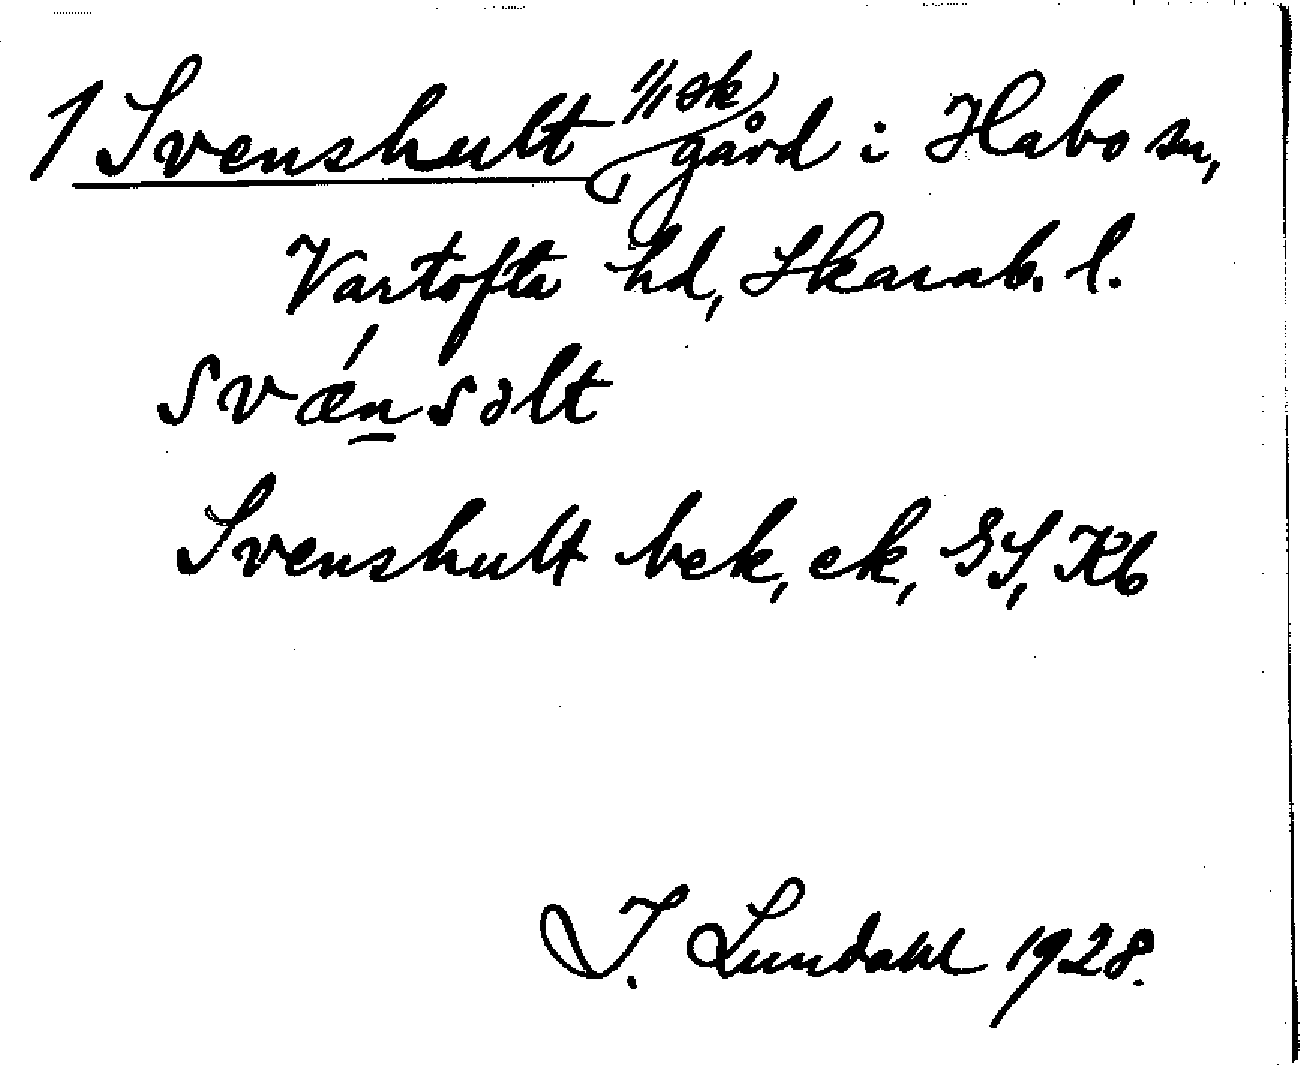 1 Svenshult, 1/1 sk gård i Habo sn,
Vartofta hd, Skarab. l.
svǽnsəlt
Svenshult bek, ek, GS, Kb
I. Lundahl 1928.